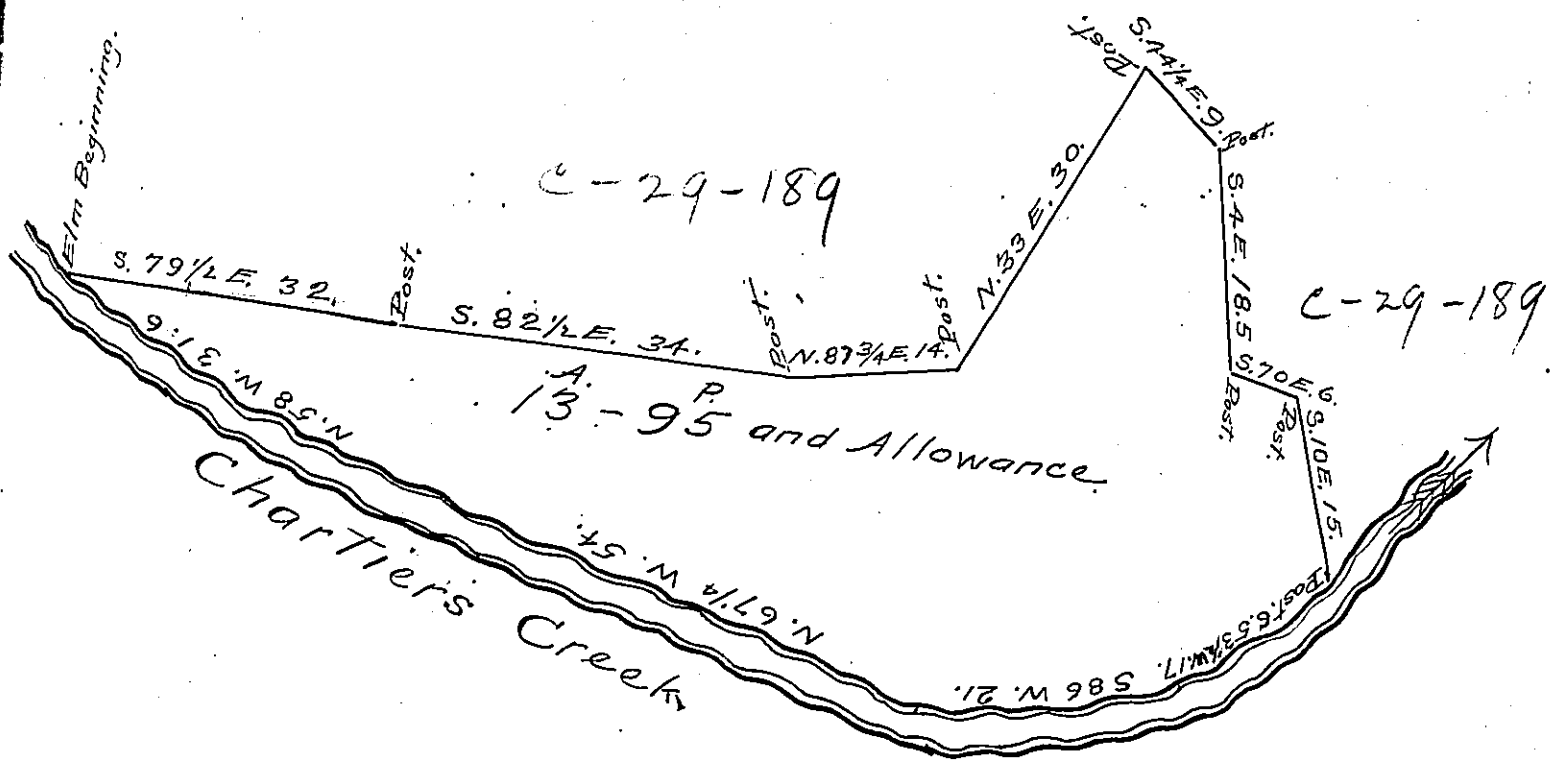 Elm Beginning.
S. 79 1/2 E. 32.
Post.
S. 82 1/2 E. 34.
Post.
N. 87 3/4 E. 14.
Post.
N. 33 E. 30.
Post.
S. 44 1/4 E. 9.
Post.
S. 4 E. 18.5
Post.
S. 70 E. 6.
Post.
S. 10 E. 15.
Post.
S. 53 1/2 W. 17.
S 86 W. 21.
N. 67 1/4 W. 54.
N. 58 W. 31.6
C-29-189
C-29-189
A. P.
13 - 95 and Allowance.
Chartiers Creek